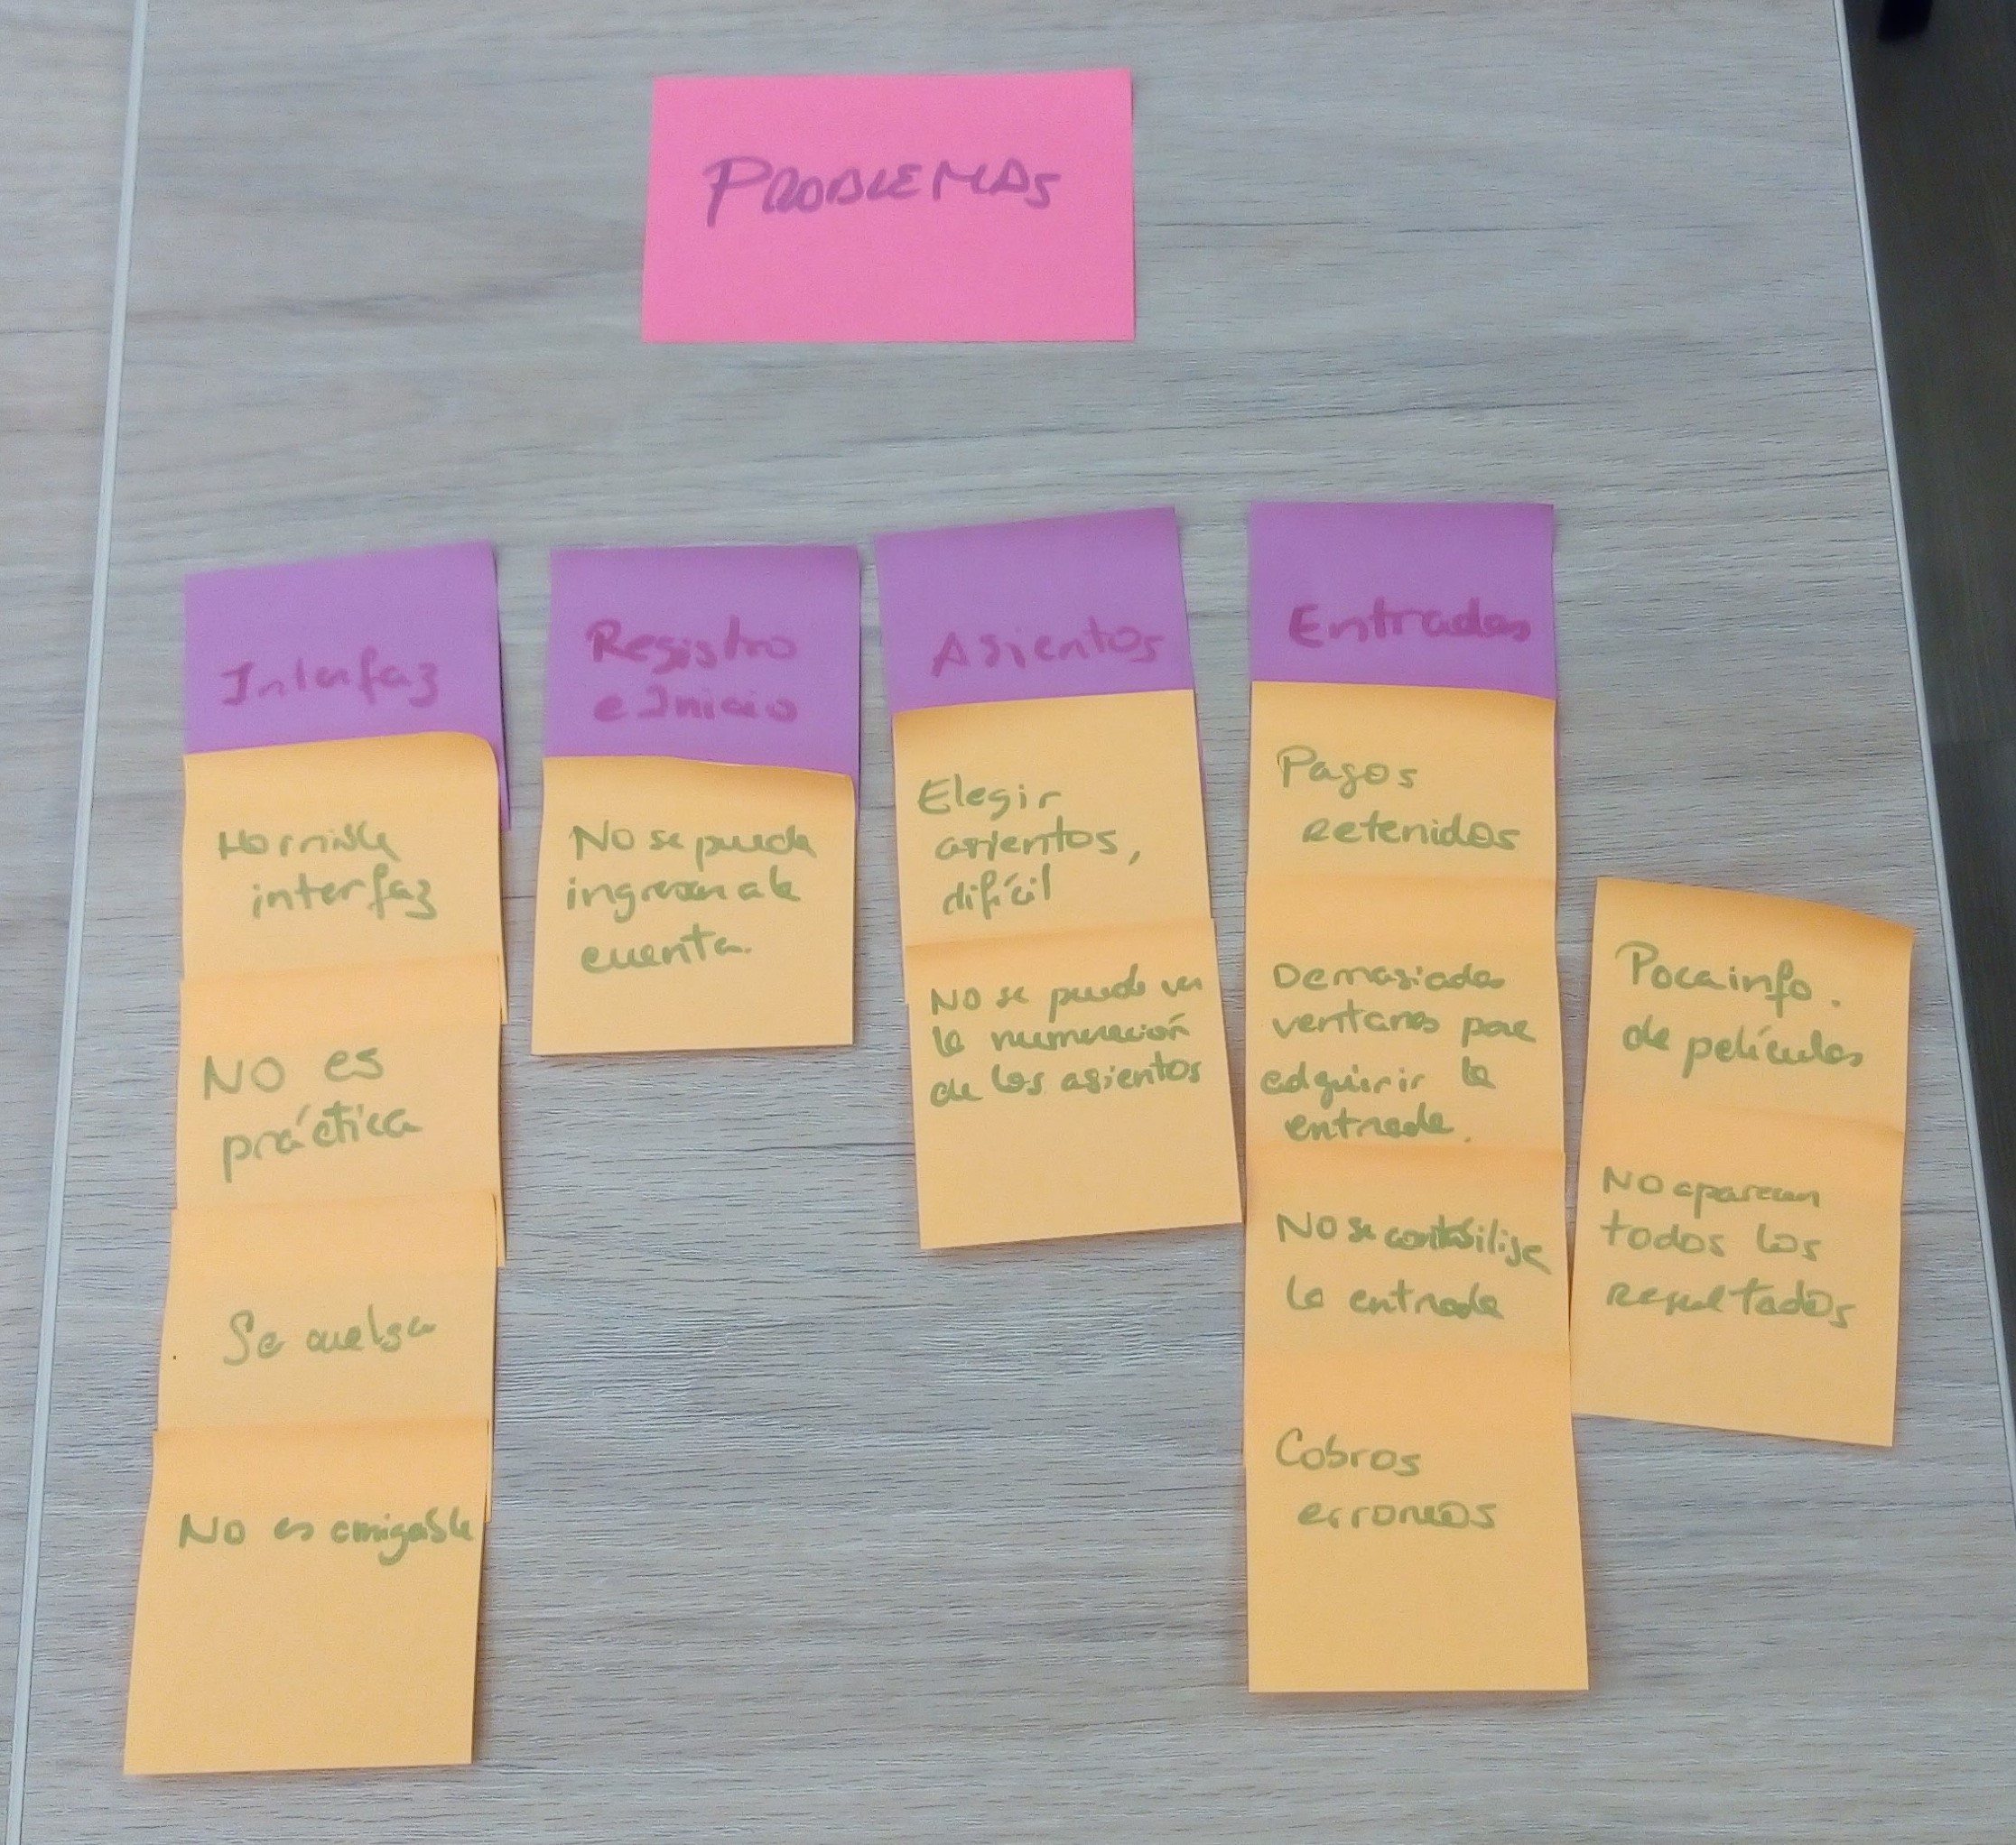 PROBLEMAS
Interfaz
Horrible
interfaz
NO es
práctica
Se cuelga
No es amigable
Registro
e Inicio
No se puede
ingresar a la
cuenta.
Asientos
Elegir
asientos,
difícil
NO se puede ver
la numeración
de los asientos
Entradas
Pagos
retenidos
Demasiadas
ventanas para
adquirir la
entrada.
NO se contabiliza
la entrada
Cobros
erroneos
Poca info.
de películas
NO aparecen
todos los
resultados